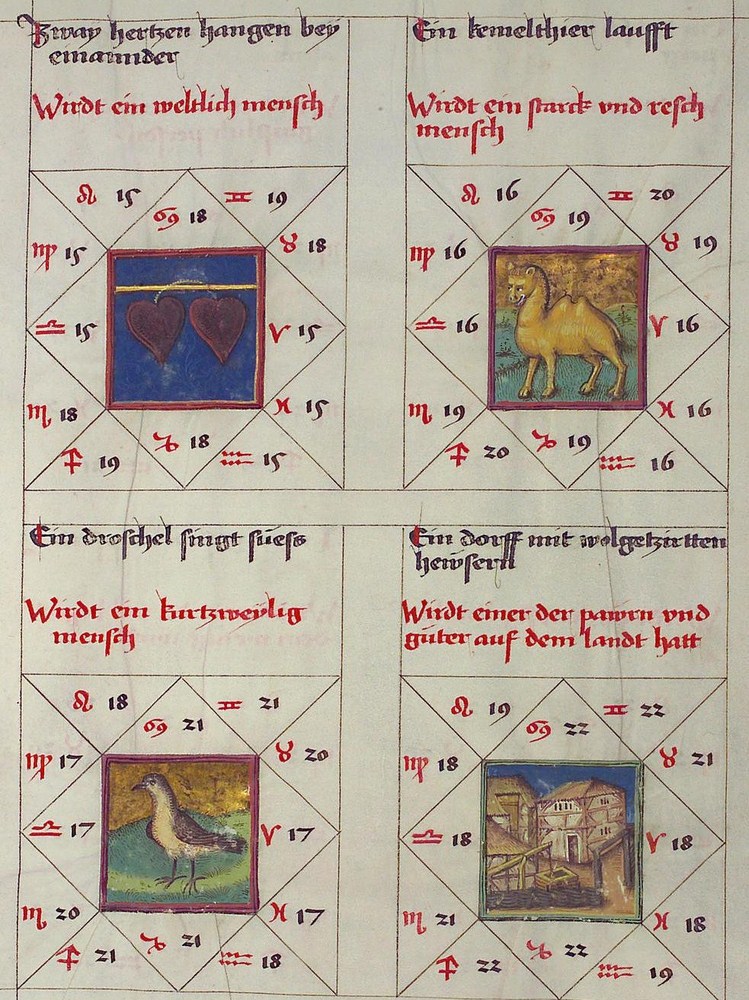 Zway hertzen hangen bey
einainnder
Wirdt ein weltlich mensch
♌ 15
♋ 18
♊ 19
♍ 15
♉ 18
♎ 15
♈ 15
♏ 18
♓ 15
♐ 19
♑ 18
♒ 15
Ein kemelthier laufft
Wirdt ein starck vnd resch
mensch
♌ 16
♋ 19
♊ 20
♍ 16
♉ 19
♎ 16
♈ 16
♏ 19
♓ 16
♐ 20
♑ 19
♒ 16
Ein droschel singt süess
Wirdt ein kurtzweylig
mensch
♌ 18
♋ 21
♊ 21
♍ 17
♉ 20
♎ 17
♈ 17
♏ 20
♓ 17
♐ 21
♑ 21
♒ 18
Ein dorff mit wolgetzirtten
hewsern
Wirdt einer der pawrn vnd
güter auf dem landt hatt
♌ 19
♋ 22
♊ 22
♍ 18
♉ 21
♎ 18
♈ 18
♏ 21
♓ 18
♐ 22
♑ 22
♒ 19